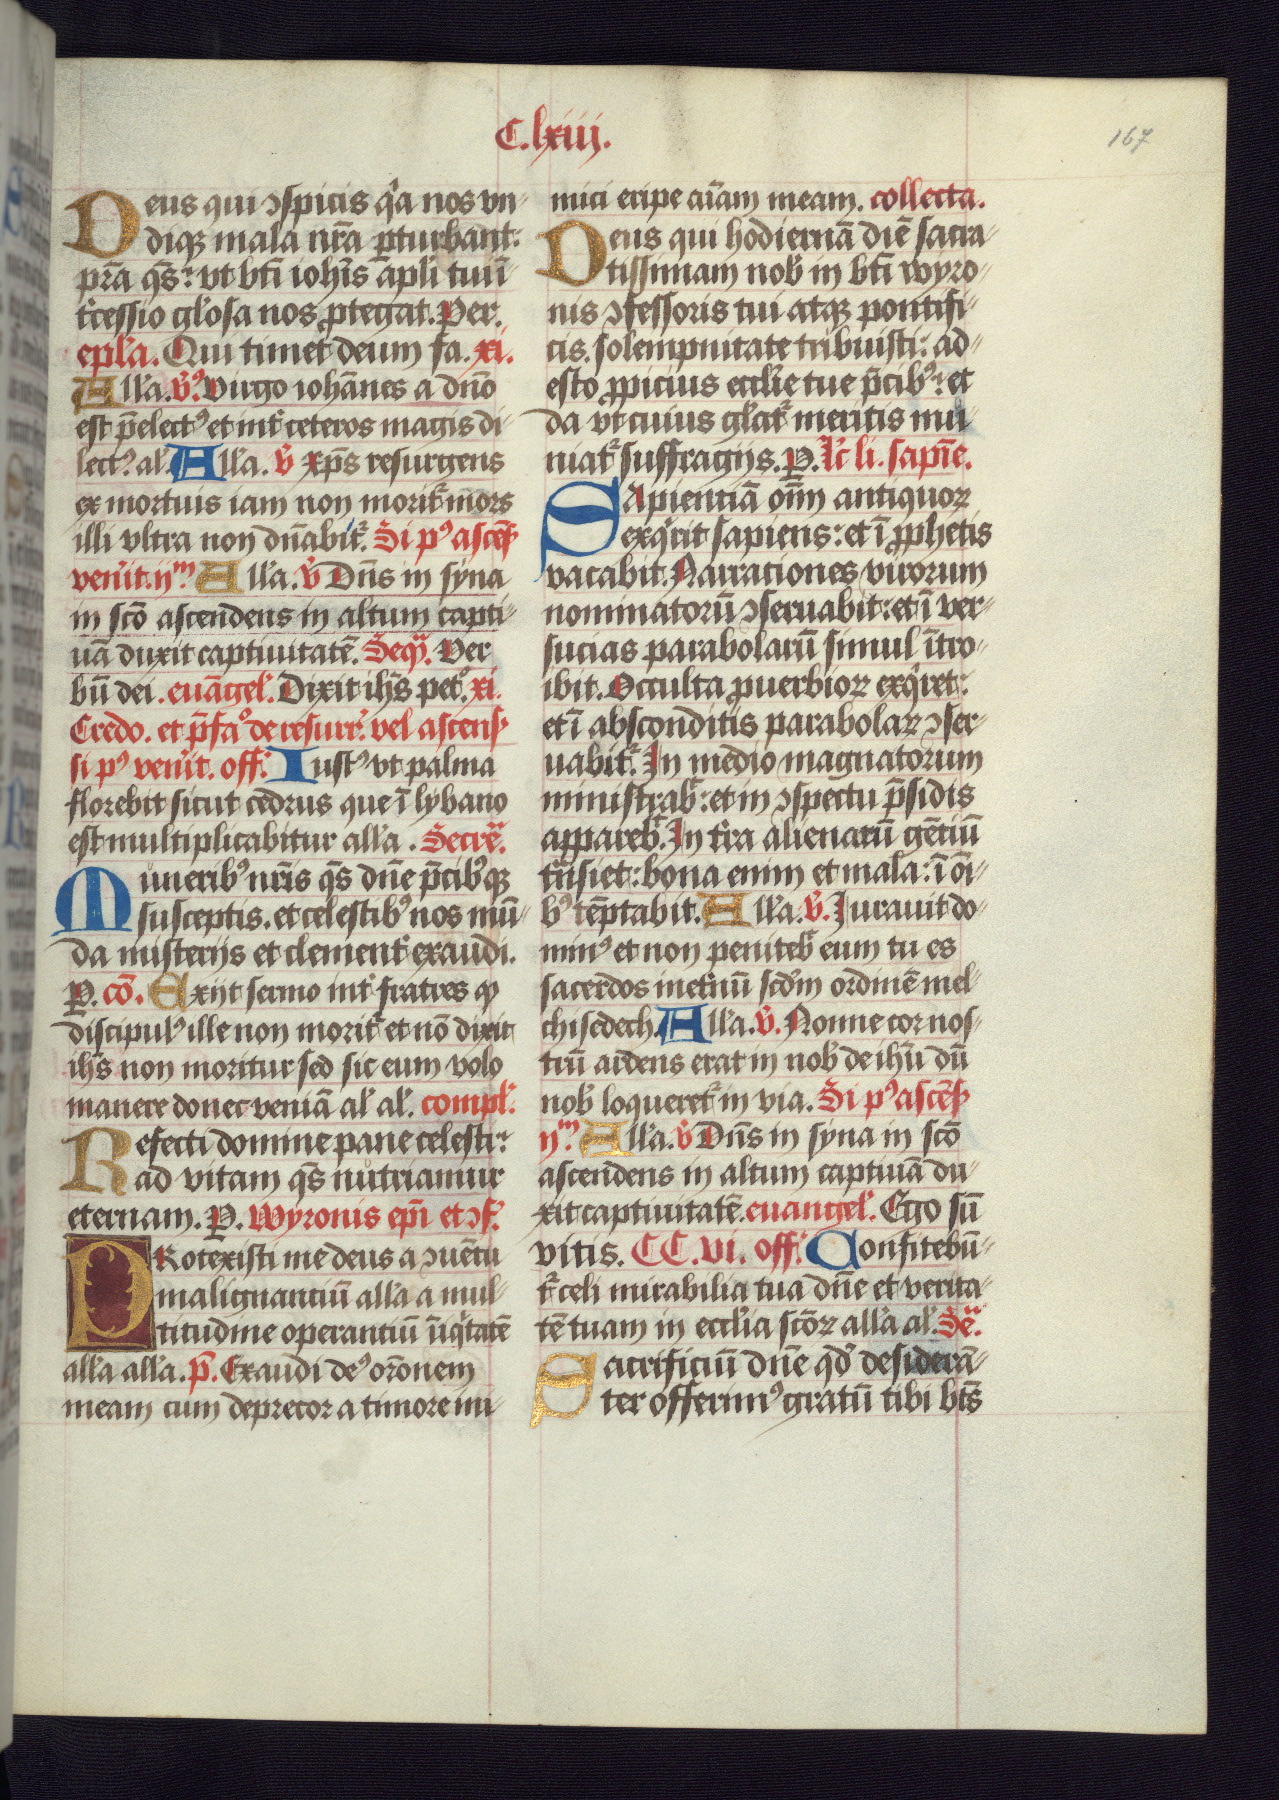 C.lxiij.
167
Deus qui ɔspicis q̃a nos vn-
diqꝫ mala nr̃a ꝑturbant:
pr̃a qs̃: vt bt̃i ioh̃is ap̃li tui ĩ-
t̃cessio gl̓osa nos ꝓtegat. Per.
epl̓a. Qui timet deum fa. xi.
All̓a. v̓. Virgo ioh̃anes a dnõ
est p̃elect⁹ et int̓ ceteros magis di-
lect⁹. al̓. All̓a. v̓ xp̃s resurgens
ex mortuis iam non morit᷑ mors
illi vltra non dn̄abit᷑. Si p⁹ ascẽs̃
veñit. ijᵐ. All̓a. v̓ Dn̄s in syna
in sco̅ ascendens in altum capti-
uã duxit captiuitatẽ. Seqᵃ. Ver
bũ dei. euãgel̓. Dixit ih̃s petº. xi.
Credo. et p̃faº de resurr̓. vel ascens̃
si p⁹ veñit. off̓. Iust⁹ vt palma
florebit sicut cedrus que ĩ lybano
est multiplicabitur all̓a. Secrᵃ.
Muneribꝰ nr̃is qs̃ dñe p̃cibꝰqꝫ
susceptis. et celestibꝰ nos mũ-
da misterijs et clement̓ exaudi.
P. cõ. Exijt sermo int̓ fratres ꝙ
discipul⁹ ille non morit᷑ et nõ dixit
ih̃s non moritur sed sic eum volo
manere donec veniã al̓ al̓. compl̓.
Refecti domine pane celesti:
ad vitam qs̃ nutriamur
eternam. P. Wyronis ep̃i et ɔf.
PRotexisti me deus a ɔuẽtu
malignantiũ all̓a a mul-
titudine operantiũ ĩiq̓tatẽ
all̓a all̓a. p̃. Exaudi de⁹ or̃onem
meam cum deprecor a timore ini-
mici eripe aĩam meam. collecta.
Deus qui hodiernã diẽ sacra-
tissimam nob̓ in bt̃i wyro-
nis ɔfessoris tui atqꝫ pontifi-
cis. solempnitate tribuisti: ad-
esto ꝓpicius eccl̓ie tue p̃cibꝰ: et
da vt cuius gl̓at᷑ meritis mu
niat᷑ suffragijs. P. Lc̃ li. sapiẽ.
SApientiã om̃m antiquoꝝ
exq̓rit sapiens: et ĩ ꝓphetis
vacabit. Narrationes virorum
nominatorũ ɔseruabit: et ĩ ver-
sucias parabolarũ simul ĩtro-
ibit. Occulta ꝓuerbioꝝ exq̓ret:
et ĩ absconditis parabolaꝝ ɔser-
uabit᷑. In medio magnatorum
ministrab̓: et in ɔspectu p̃sidis
appareb̓. In t̓ra alienarũ gẽtiũ
tr̃siet: bona enim et mala: ĩ oĩ-
bꝰ tẽptabit. All̓a. v̓. Iurauit do-
min⁹ et non peniteb̓ eum tu es
sacerdos inet̓nũ scd̓m ordinẽ mel-
chisedech. All̓a. v̓. Nonne cor nos-
trũ ardens erat in nob̓ de ih̃u dũ
nob̓ loqueret᷑ in via. Si p⁹ ascẽs̃
ijᵐ. All̓a. v̓ Dn̄s in syna in sco̅
ascendens in altum captiuã du-
xit captiuitatẽ. euangel̓. Ego sũ
vitis. CC. vi. off̓. Confitebũ-
t᷑ celi mirabilia tua dñe et verita-
tẽ tuam in eccl̓ia sc̃oꝝ all̓a al̓. Sẽᵃ.
Sacrificiũ dñe qd̓ desiderã-
ter offerim⁹ gratũ tibi bt̃s